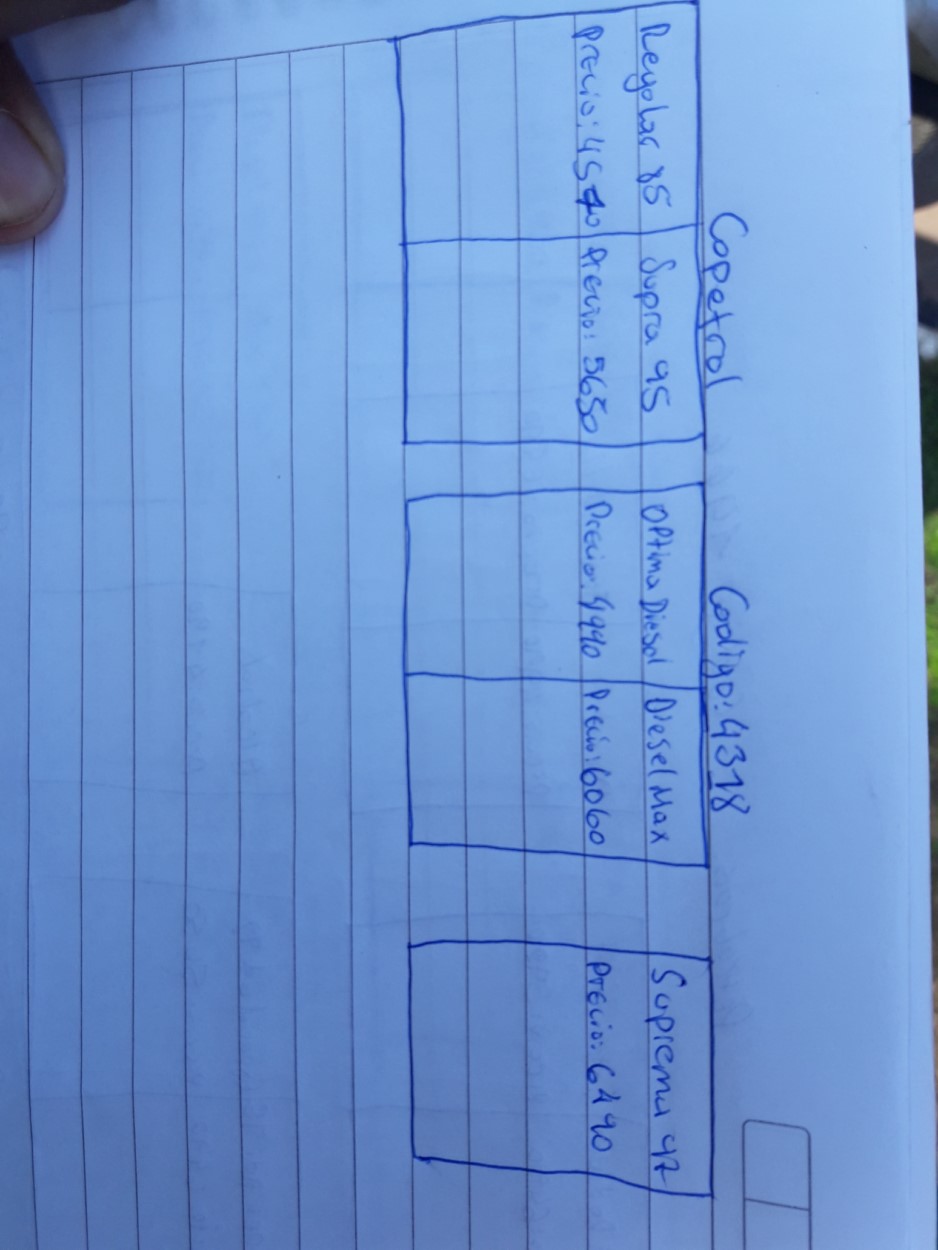 Copetrol Codigo: 4318
Regular 85 Supra 95 Optima Diesel Diesel Max Suprema 97
Precio: Precio: 5650 Precio: 4990 Precio: 6060 Precio: 6490